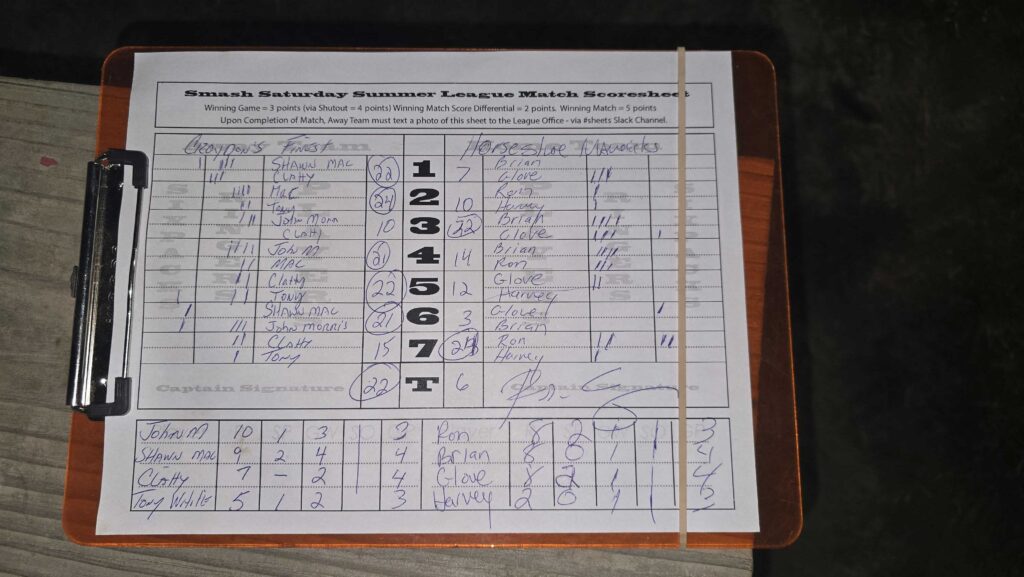 Smash Saturday Summer League Match Scoresheet
Winning Game = 3 points (via Shutout = 4 points) Winning Match Score Differential = 2 points. Winning Match = 5 points
Upon Completion of Match, Away Team must text a photo of this sheet to the League Office - via #sheets Slack Channel.
Croydon's Finest Horseshoe Mavericks
SHAWN MAC 22 1 7 Brian
CLATTY Glove
MAC 24 2 10 Ron
Tony Harvey
John Morr 10 3 22 Brian
CLATTY Glove
John M 21 4 14 Brian
MAC Ron
CLATTY 22 5 12 Glove
TONY Harvey
SHAWN MAC 21 6 3 Glove
JOHN MORRIS Brian
CLATTY 15 7 Ron
TONY Harvey
Captain Signature 22 T 6 Captain Signature
JOHN M 10 1 3 1 3 Ron 8 2 1 1 3
SHAWN MAC 9 2 4 4 Brian 8 0 1 1 4
CLATTY 7 - 2 4 Glove 8 2 1 1 4
TONY WHITE 5 1 2 3 Harvey 2 0 1 1 3